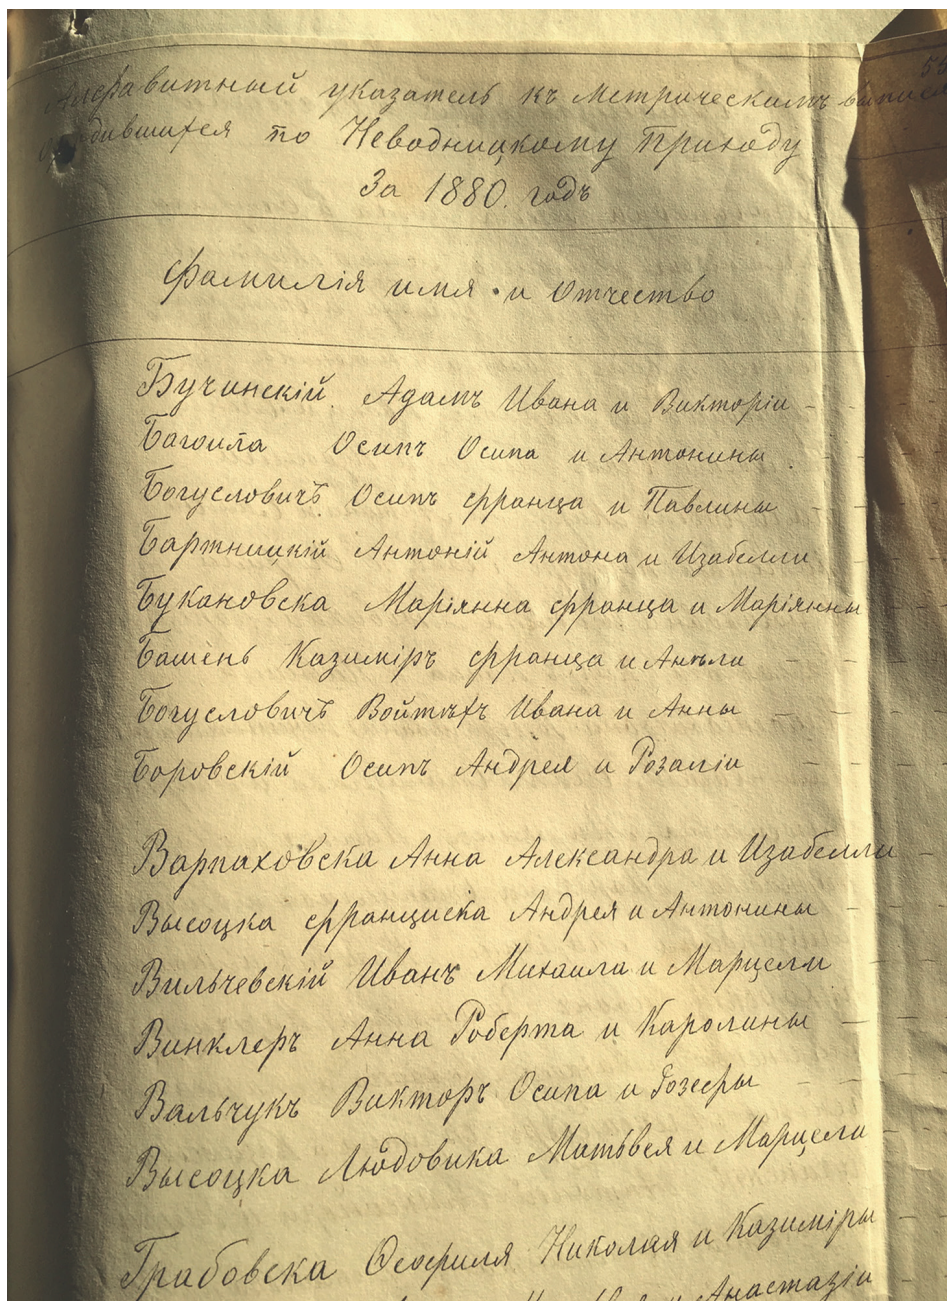 Алфавитный указатель къ Метрическимъ выписк
о родившихся по Неводницкому Приходу
За 1880. годъ
55
Фамилія имя и Отчество
Бучинскій Адамъ Ивана и Викторіи -
Осипъ Осипа и Антонины
Богусловичъ Осипъ Франца и Павлины
Бартницкій Антоній Антона и Изабелли
Букановска Маріянна Франца и Маріянны
Башенъ Казиміръ Франца и Анѣли
Богусловичъ Войтѣхъ Ивана и Анны
Боровскій Осипъ Андрея и Розаліи
Варпаховска Анна Александра и Изабелли
Высоцка Франциска Андрея и Антонины
Вильчевскій Иванъ Михаила и Марцели
Винклеръ Анна Роберта и Каролины
Вальчукъ Викторъ Осипа и Юзефы
Высоцка Людовика Матьвея и Марцели
Грабовска Ѳеофиля Николая и Казиміры
и Анастазіи